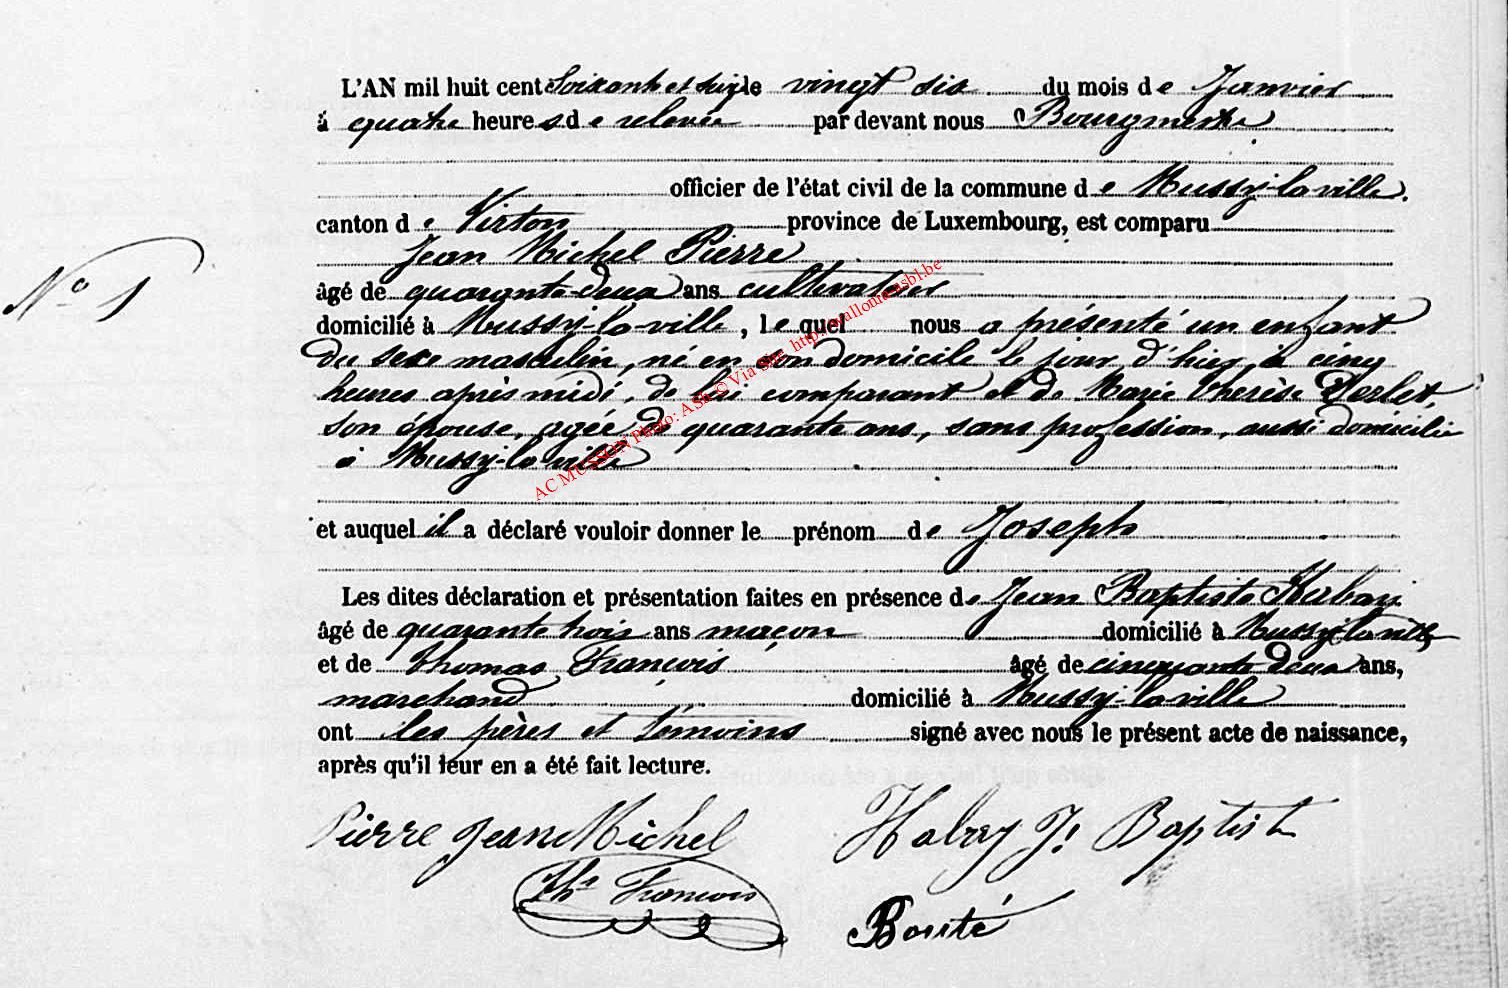 L'AN mil huit cent Soixante et seize le vingt six du mois de Janvier
à quatre heures de relevée par devant nous Bourgmestre
officier de l'état civil de la commune de Mussy-la-ville.
canton de Virton province de Luxembourg, est comparu
Jean Michel Pierre
N° 1
âgé de quarante-deux ans cultivateur
domicilié à Mussy-la-ville, lequel nous a présenté un enfant
du sexe masculin, né en son domicile le jour d'hier à cinq
heures après midi, de lui comparant et de Marie Therèse Perlet,
son épouse, agée de quarante ans, sans profession, aussi domicilié
à Mussy-la-ville
AC MUSSON Photo: ASh © Via Site http://wallonia-asbl.be
et auquel il a déclaré vouloir donner le prénom de Joseph
Les dites déclaration et présentation faites en présence de Jean Baptiste
âgé de quarante trois ans maçon domicilié à Mussy-la-ville
et de thomas François âgé de cinquante deux ans,
marchand domicilié à Mussy-la-ville
ont les pères et témoins signé avec nous le présent acte de naissance,
après qu'il leur en a été fait lecture.
Pierre Jean Michel Habay J. Baptist
Th. François